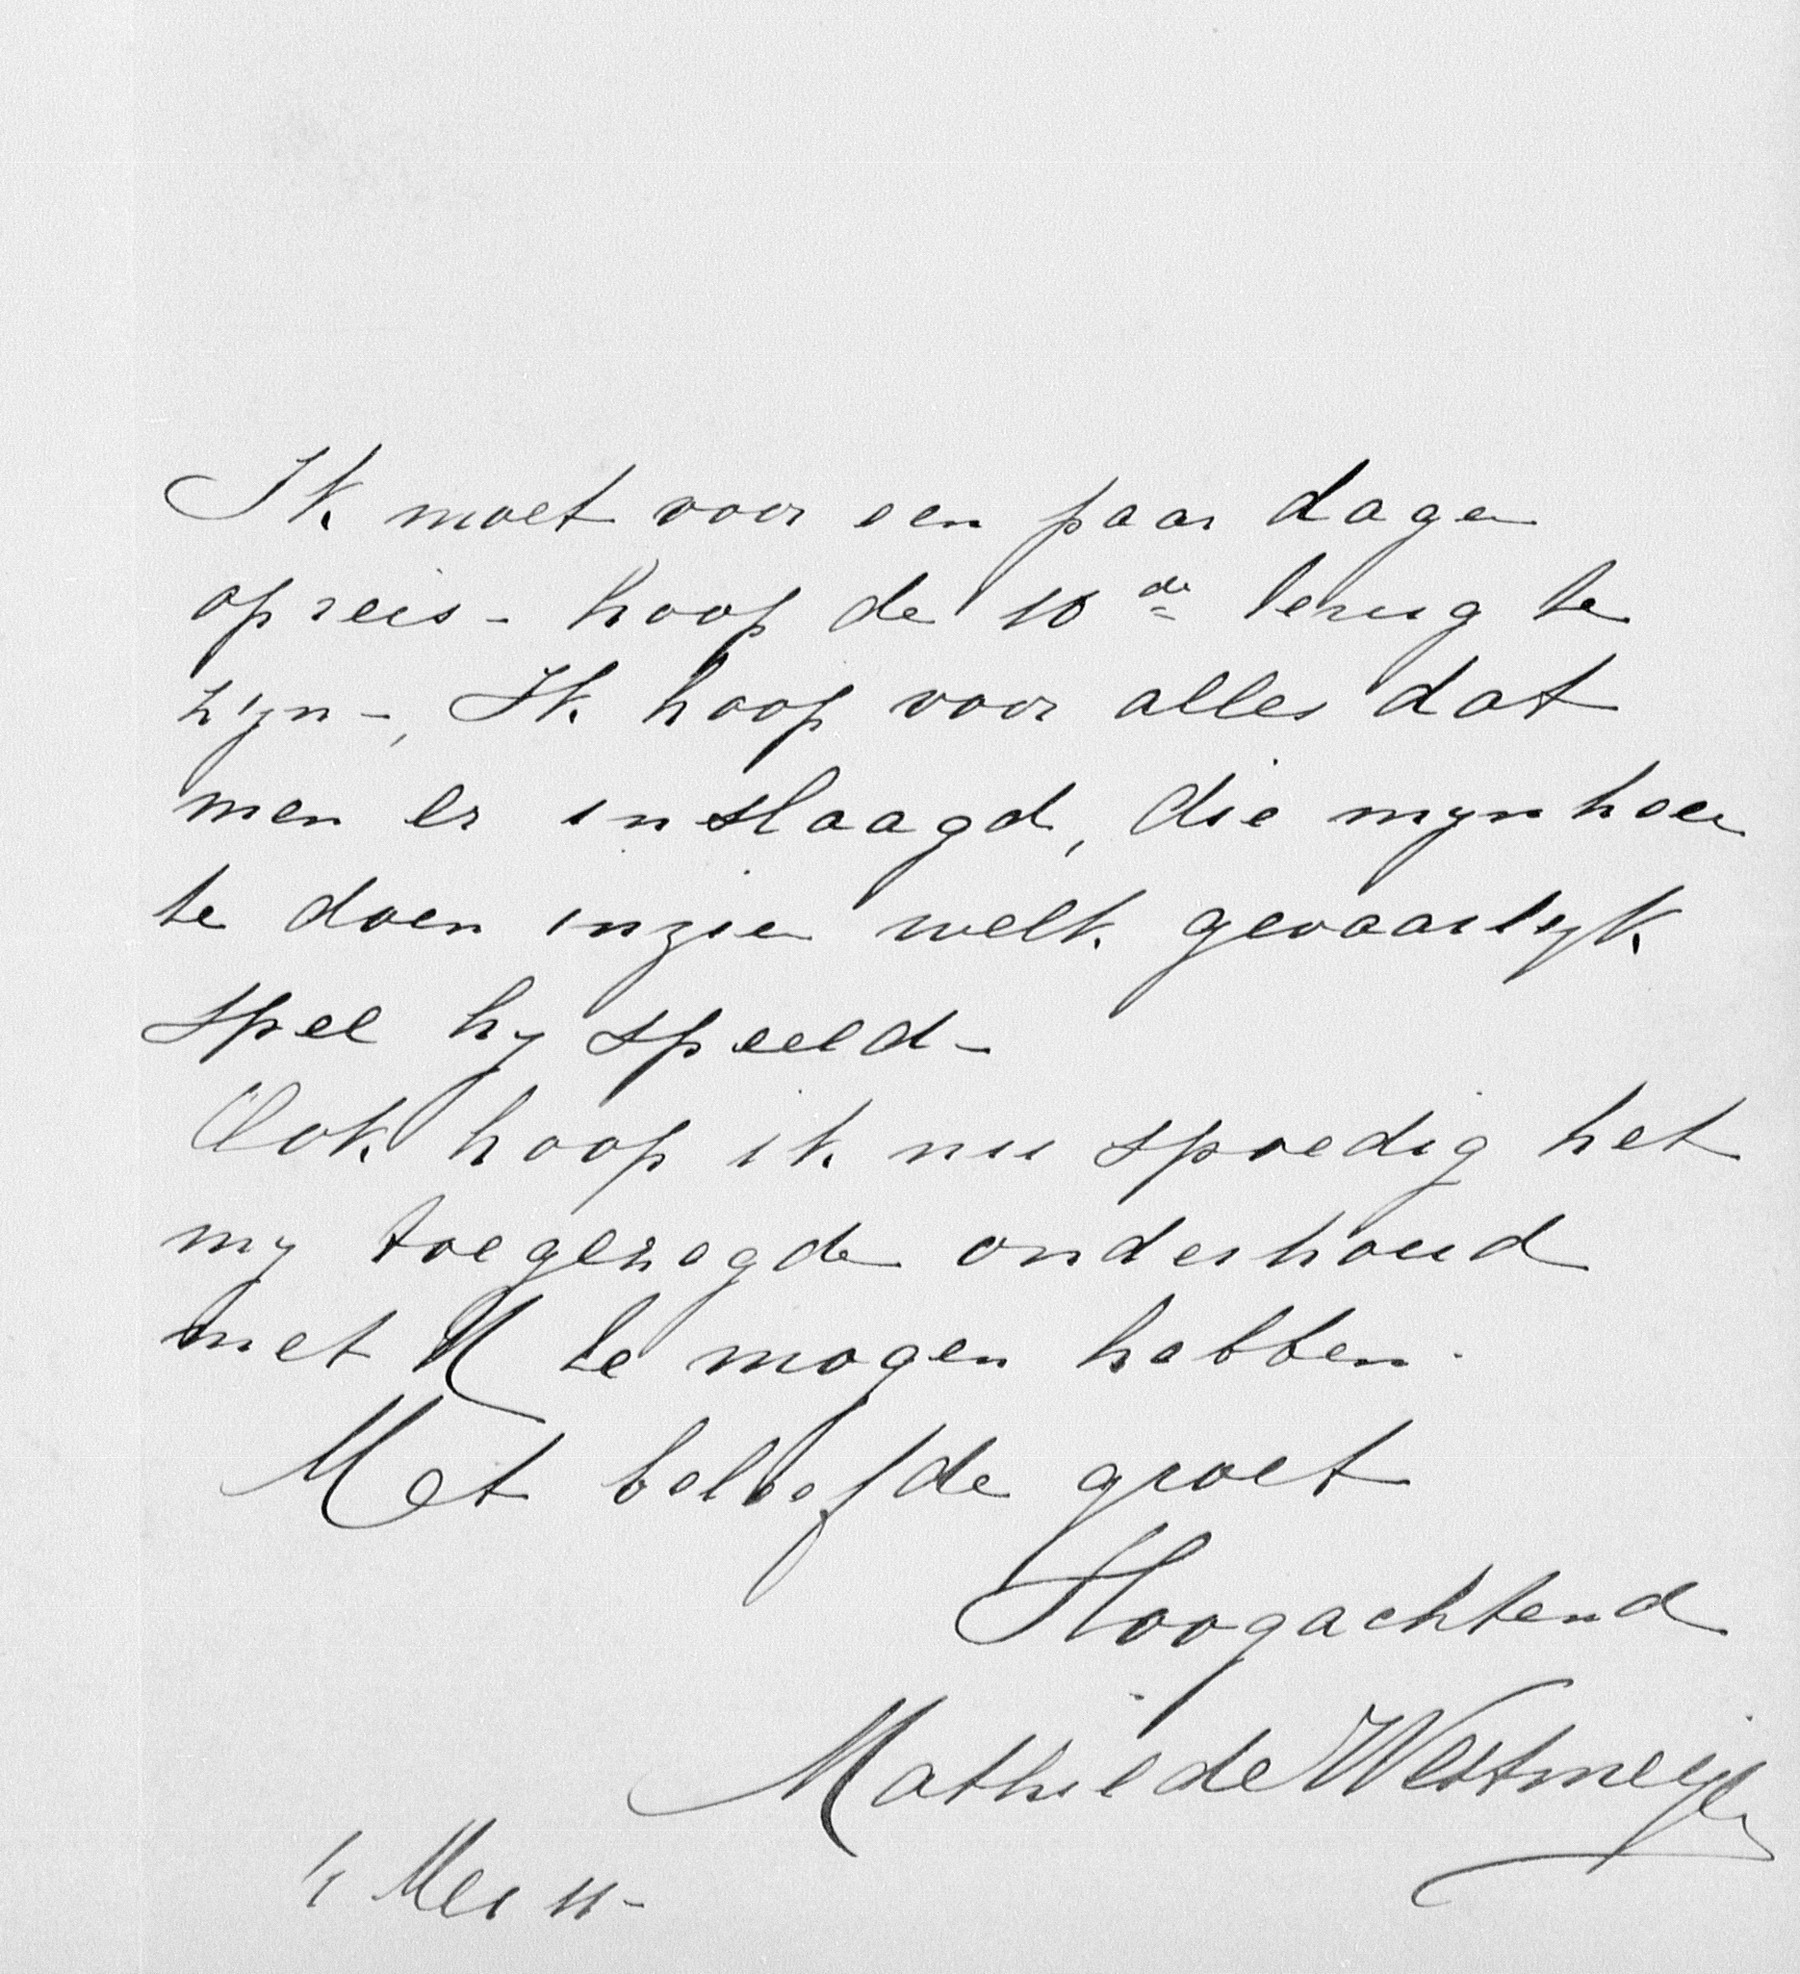 Ik moet voor een paar dagen
op reis - hoop de 10de terug te
zijn -, Ik hoop voor alles dat
men er in slaagd, die mynheer
te doen inzien welk gevaarlyk
spel hy speeld -
Ook hoop ik nu spoedig het
my toegezegde onderhoud
met U te mogen hebben.
Met beleefde groet
Hoogachtend
Mathilde Westmeijer
4 Mei 11-